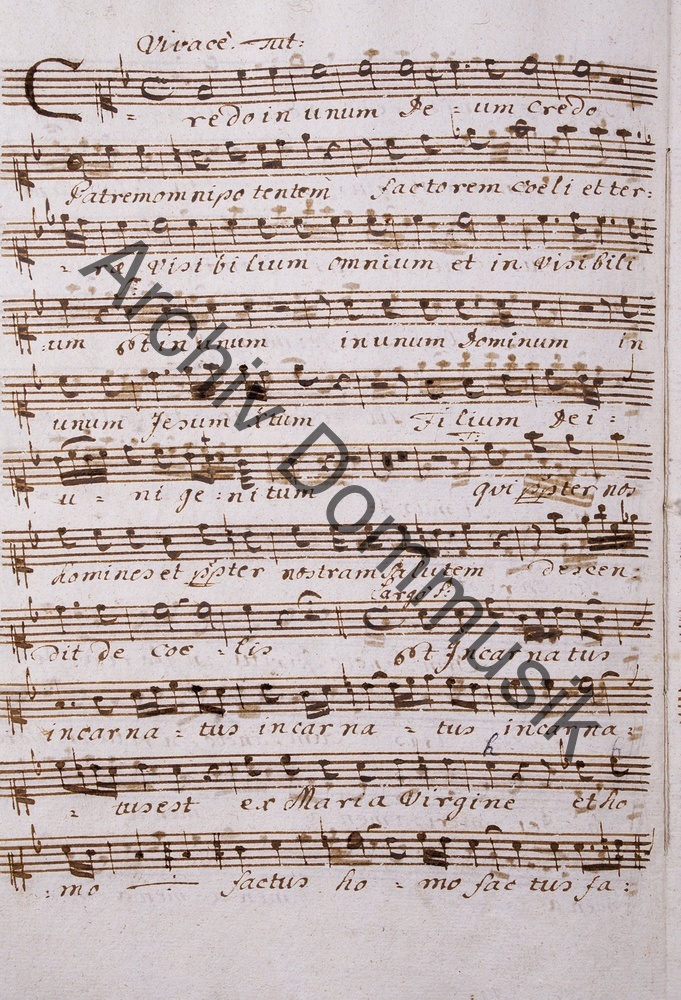 Vivacè. Tut:
Credo in unum De - um Credo
Patrem omnipotentem factorem Coeli et ter:
- ræ Visibilium omnium et in Visibili
:um et in unum in unum Dominum in
unum Jesum Xtum Filium Dei :
u - ni ge : ni tum qui ppter nos
homines et ppter nostram Salutem descen :
Largo S:
dit de coe - lis et Incarnatus
incarna - tus incarna - tus incarna :
- tus est ex Maria Virgine et ho
: mo factus ho - mo factus fa :
Archiv Dommusik